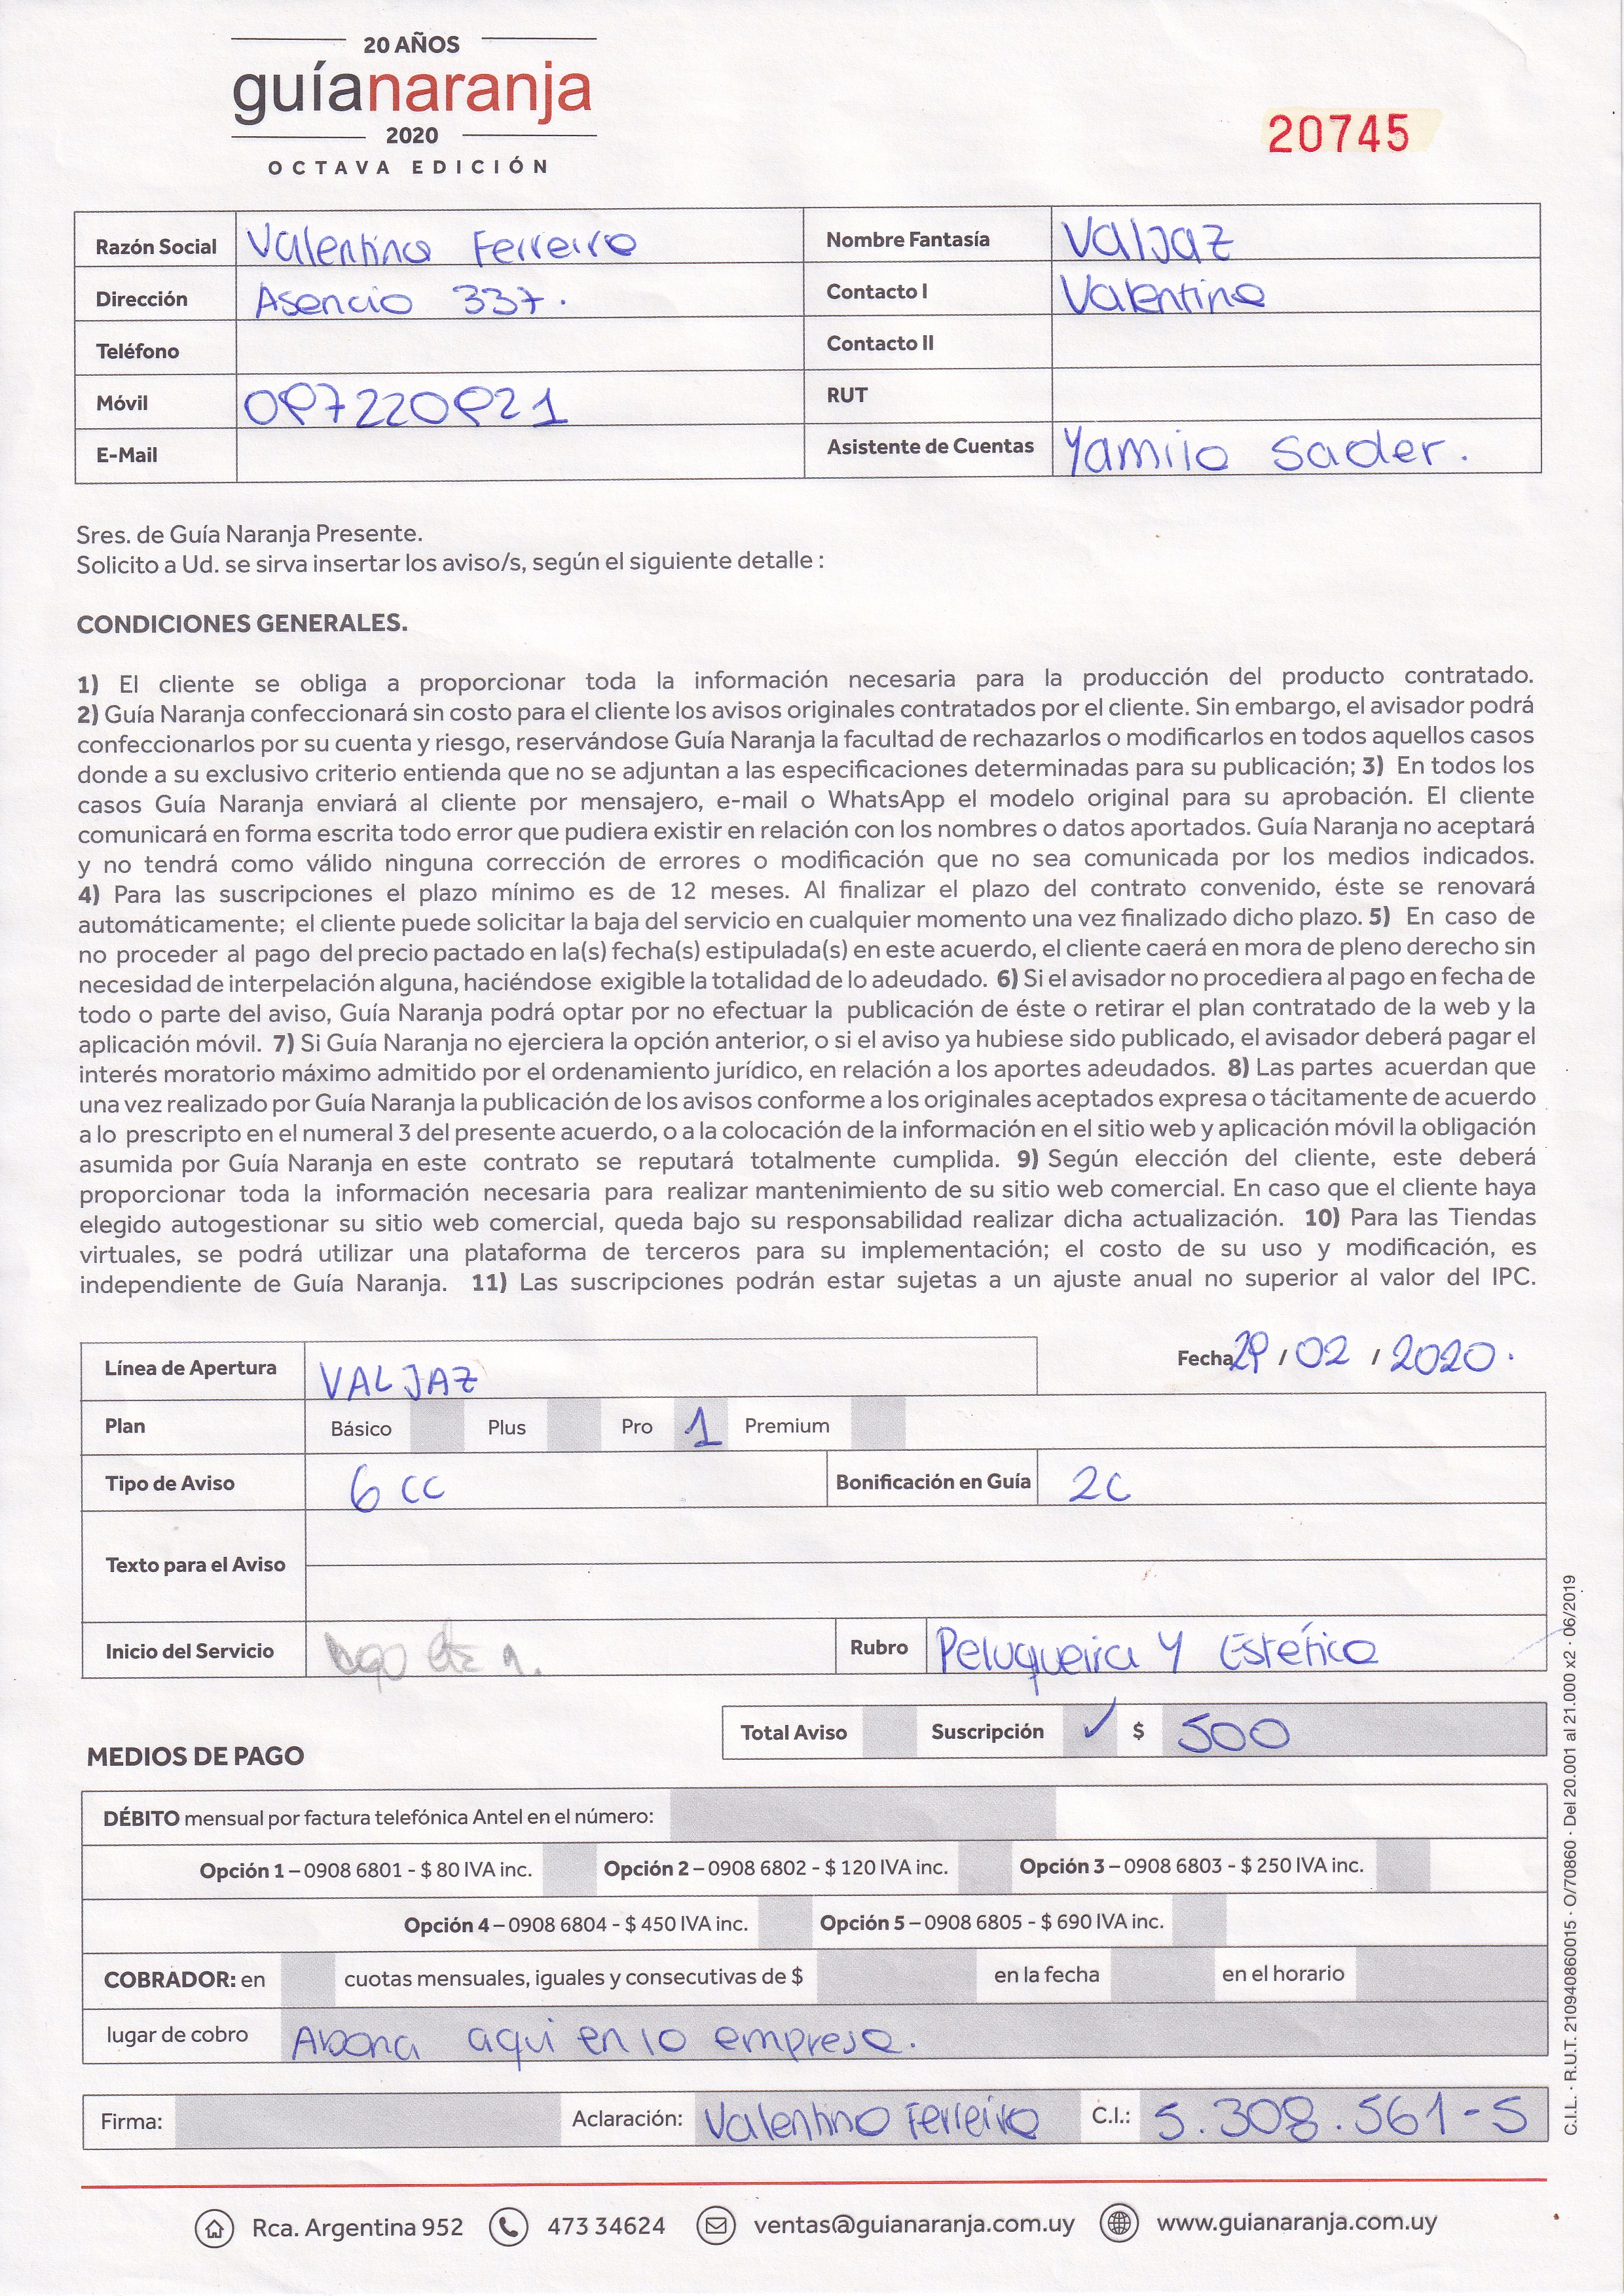 20 AÑOS
guíanaranja
2020
OCTAVA EDICIÓN
20745
Razón Social Valentina Ferreira Nombre Fantasía Valjaz
Dirección Asencio 337. Contacto I Valentina
Teléfono Contacto II
Móvil 097220921 RUT
E-Mail Asistente de Cuentas Yamila Sader.
Sres. de Guía Naranja Presente.
Solicito a Ud. se sirva insertar los aviso/s, según el siguiente detalle :
CONDICIONES GENERALES.
1) El cliente se obliga a proporcionar toda la información necesaria para la producción del producto contratado.
2) Guía Naranja confeccionará sin costo para el cliente los avisos originales contratados por el cliente. Sin embargo, el avisador podrá
confeccionarlos por su cuenta y riesgo, reservándose Guía Naranja la facultad de rechazarlos o modificarlos en todos aquellos casos
donde a su exclusivo criterio entienda que no se adjuntan a las especificaciones determinadas para su publicación; 3) En todos los
casos Guía Naranja enviará al cliente por mensajero, e-mail o WhatsApp el modelo original para su aprobación. El cliente
comunicará en forma escrita todo error que pudiera existir en relación con los nombres o datos aportados. Guía Naranja no aceptará
y no tendrá como válido ninguna corrección de errores o modificación que no sea comunicada por los medios indicados.
4) Para las suscripciones el plazo mínimo es de 12 meses. Al finalizar el plazo del contrato convenido, éste se renovará
automáticamente; el cliente puede solicitar la baja del servicio en cualquier momento una vez finalizado dicho plazo. 5) En caso de
no proceder al pago del precio pactado en la(s) fecha(s) estipulada(s) en este acuerdo, el cliente caerá en mora de pleno derecho sin
necesidad de interpelación alguna, haciéndose exigible la totalidad de lo adeudado. 6) Si el avisador no procediera al pago en fecha de
todo o parte del aviso, Guía Naranja podrá optar por no efectuar la publicación de éste o retirar el plan contratado de la web y la
aplicación móvil. 7) Si Guía Naranja no ejerciera la opción anterior, o si el aviso ya hubiese sido publicado, el avisador deberá pagar el
interés moratorio máximo admitido por el ordenamiento jurídico, en relación a los aportes adeudados. 8) Las partes acuerdan que
una vez realizado por Guía Naranja la publicación de los avisos conforme a los originales aceptados expresa o tácitamente de acuerdo
a lo prescripto en el numeral 3 del presente acuerdo, o a la colocación de la información en el sitio web y aplicación móvil la obligación
asumida por Guía Naranja en este contrato se reputará totalmente cumplida. 9) Según elección del cliente, este deberá
proporcionar toda la información necesaria para realizar mantenimiento de su sitio web comercial. En caso que el cliente haya
elegido autogestionar su sitio web comercial, queda bajo su responsabilidad realizar dicha actualización. 10) Para las Tiendas
virtuales, se podrá utilizar una plataforma de terceros para su implementación; el costo de su uso y modificación, es
independiente de Guía Naranja. 11) Las suscripciones podrán estar sujetas a un ajuste anual no superior al valor del IPC.
Línea de Apertura VALJAZ Fecha 29 / 02 / 2020.
Plan Básico Plus Pro 1 Premium
Tipo de Aviso 6 CC Bonificación en Guía 2C
Texto para el Aviso
Inicio del Servicio Rubro Peluqueria Y Estética
Total Aviso Suscripción ✓ $ 500
MEDIOS DE PAGO
DÉBITO mensual por factura telefónica Antel en el número:
Opción 1 – 0908 6801 - $ 80 IVA inc. Opción 2 – 0908 6802 - $ 120 IVA inc. Opción 3 – 0908 6803 - $ 250 IVA inc.
Opción 4 – 0908 6804 - $ 450 IVA inc. Opción 5 – 0908 6805 - $ 690 IVA inc.
COBRADOR: en cuotas mensuales, iguales y consecutivas de $ en la fecha en el horario
lugar de cobro Abona aqui en la empresa.
Firma: Aclaración: Valentina Ferreira C.I.: 5.308.561-5
C.I.L. · R.U.T. 210940860015 · O/70860 · Del 20.001 al 21.000 x2 · 06/2019
Rca. Argentina 952 473 34624 ventas@guianaranja.com.uy www.guianaranja.com.uy